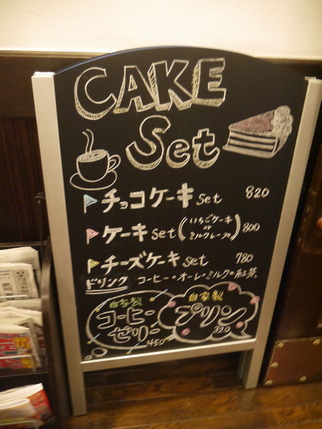 CAKE
Set
チョコケーキ Set 820
ケーキ Set (いちごケーキ or ミルクレープ) 800
チーズケーキ Set 780
ドリンク コーヒー・オーレ・ミルク・紅茶
自家製
コーヒー
ゼリー 450
自家製
プリン
320